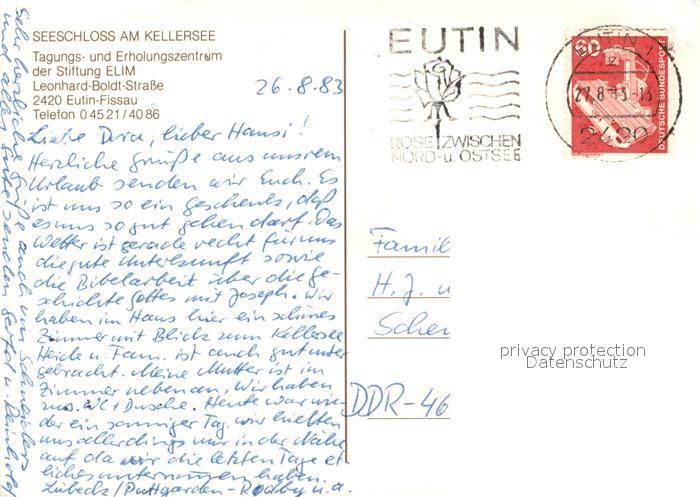 SEESCHLOSS AM KELLERSEE
Tagungs- und Erholungszentrum
der Stiftung ELIM
Leonhard-Boldt-Straße
2420 Eutin-Fissau
Telefon 0 45 21 / 40 86
26.8.83
Liebe Dora, lieber Hansi!
Herzliche Grüße aus unsrem
Urlaub senden wir Euch. Es
ist uns so ein Geschenk, daß
es uns so gut gehen darf. Das
Wetter ist gerade recht für uns
die gute Unterkunft sowie
die Bibelarbeit über die Ge-
schichte Gottes mit Joseph. Wir
haben im Haus hier ein schönes
Zimmer mit Blick zum Kellersee
Heide u. Fam. ist auch gut unter
gebracht. Meine Mutter ist im
Zimmer nebenan, Wir haben
zus. WC + Dusche. Heute war wie-
der ein sonniger Tag. wir hielten
uns allerdings nur in der Nähe
auf da wir die letzten Tage et
liches unternommen haben.
Lübeck / Puttgarden - Rødby u. a.
Sehr herzliche Grüße auch von
und alles Gute senden Gerda u. Reinhold
EUTIN
ROSE ZWISCHEN
NORD- u. OSTSEE
EUTIN 1
27.8.83-13
2420
60
DEUTSCHE BUNDESPOST
Famil
H. J. u
Scher
DDR-46
privacy protection
Datenschutz